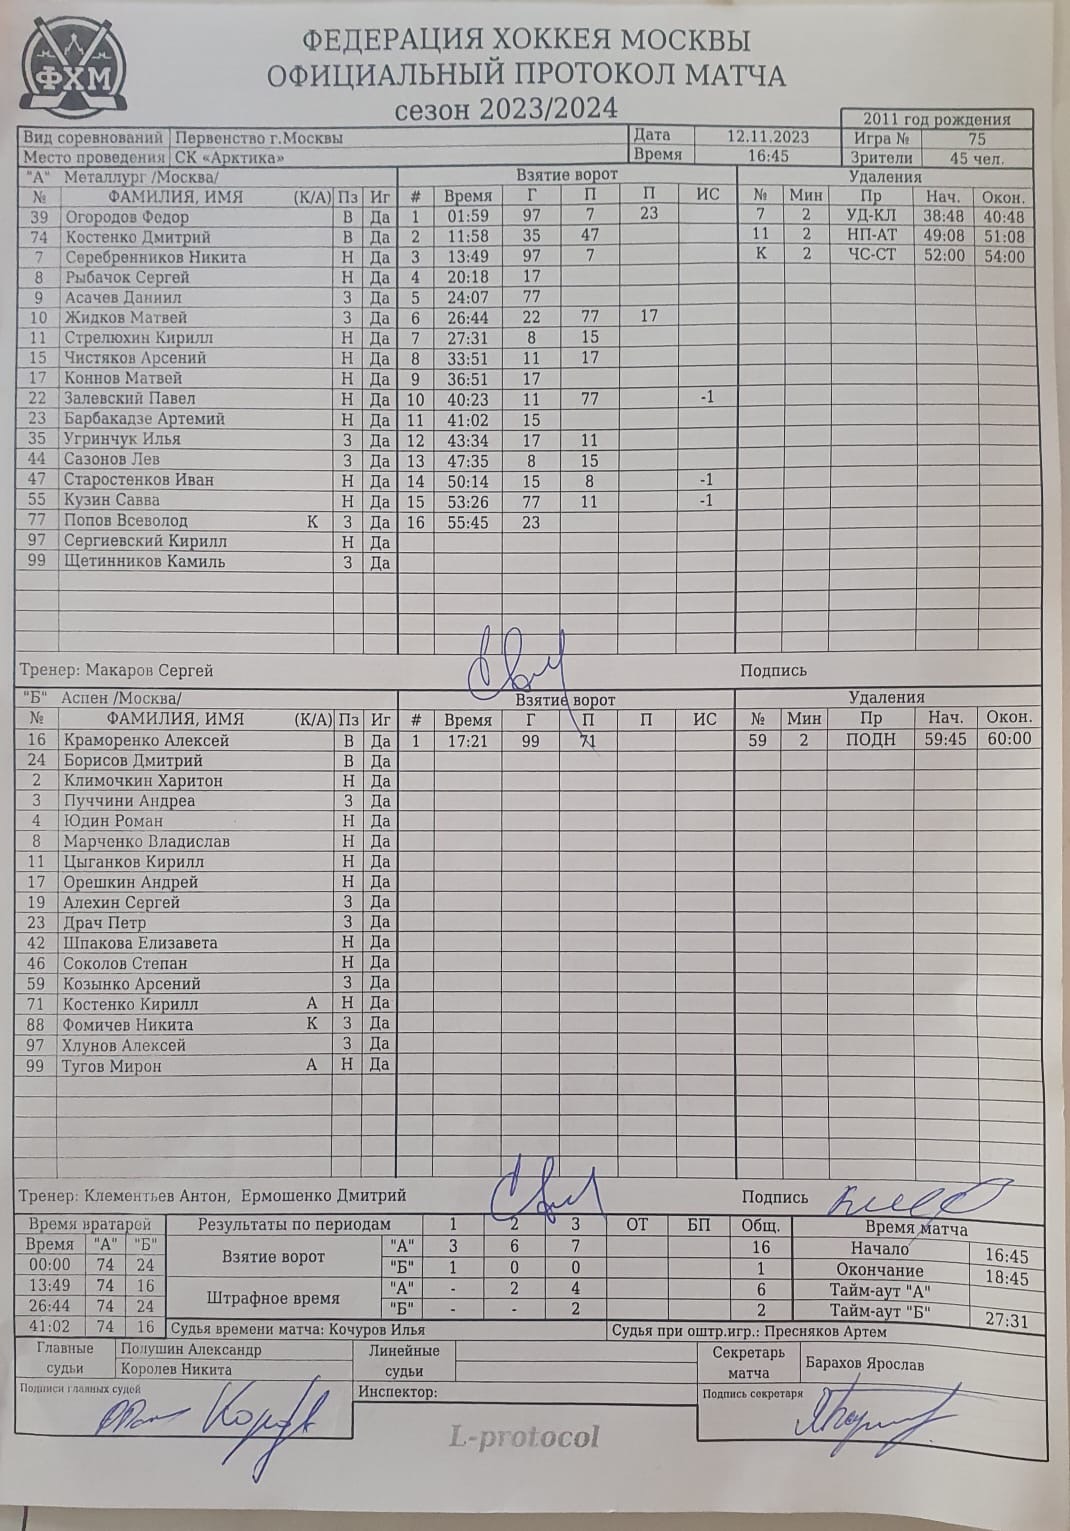 ФХМ
ФЕДЕРАЦИЯ ХОККЕЯ МОСКВЫ
ОФИЦИАЛЬНЫЙ ПРОТОКОЛ МАТЧА
сезон 2023/2024
2011 год рождения
Вид соревнований Первенство г.Москвы Дата 12.11.2023 Игра № 75
Место проведения СК «Арктика» Время 16:45 Зрители 45 чел.
"А" Металлург /Москва/ Взятие ворот Удаления
№ ФАМИЛИЯ, ИМЯ (К/А) Пз Иг # Время Г П П ИС № Мин Пр Нач. Окон.
39 Огородов Федор В Да 1 01:59 97 7 23 7 2 УД-КЛ 38:48 40:48
74 Костенко Дмитрий В Да 2 11:58 35 47 11 2 НП-АТ 49:08 51:08
7 Серебренников Никита Н Да 3 13:49 97 7 К 2 ЧС-СТ 52:00 54:00
8 Рыбачок Сергей Н Да 4 20:18 17
9 Асачев Даниил З Да 5 24:07 77
10 Жидков Матвей З Да 6 26:44 22 77 17
11 Стрелюхин Кирилл Н Да 7 27:31 8 15
15 Чистяков Арсений Н Да 8 33:51 11 17
17 Коннов Матвей Н Да 9 36:51 17
22 Залевский Павел Н Да 10 40:23 11 77 -1
23 Барбакадзе Артемий Н Да 11 41:02 15
35 Угринчук Илья З Да 12 43:34 17 11
44 Сазонов Лев З Да 13 47:35 8 15
47 Старостенков Иван Н Да 14 50:14 15 8 -1
55 Кузин Савва Н Да 15 53:26 77 11 -1
77 Попов Всеволод К З Да 16 55:45 23
97 Сергиевский Кирилл Н Да
99 Щетинников Камиль З Да
Тренер: Макаров Сергей Подпись
"Б" Аспен /Москва/ Взятие ворот Удаления
№ ФАМИЛИЯ, ИМЯ (К/А) Пз Иг # Время Г П П ИС № Мин Пр Нач. Окон.
16 Краморенко Алексей В Да 1 17:21 99 71 59 2 ПОДН 59:45 60:00
24 Борисов Дмитрий В Да
2 Климочкин Харитон Н Да
3 Пуччини Андреа З Да
4 Юдин Роман Н Да
8 Марченко Владислав Н Да
11 Цыганков Кирилл Н Да
17 Орешкин Андрей Н Да
19 Алехин Сергей З Да
23 Драч Петр З Да
42 Шпакова Елизавета Н Да
46 Соколов Степан Н Да
59 Козынко Арсений З Да
71 Костенко Кирилл А Н Да
88 Фомичев Никита К З Да
97 Хлунов Алексей З Да
99 Тугов Мирон А Н Да
Тренер: Клементьев Антон, Ермошенко Дмитрий Подпись
Время вратарей Результаты по периодам 1 2 3 ОТ БП Общ. Время матча
Время "А" "Б" Взятие ворот "А" 3 6 7 16 Начало 16:45
00:00 74 24 "Б" 1 0 0 1 Окончание 18:45
13:49 74 16 Штрафное время "А" - 2 4 6 Тайм-аут "А"
26:44 74 24 "Б" - - 2 2 Тайм-аут "Б" 27:31
41:02 74 16 Судья времени матча: Кочуров Илья Судья при оштр.игр.: Пресняков Артем
Главные судьи Полушин Александр Линейные судьи Секретарь матча Барахов Ярослав
Королев Никита
Подписи главных судей Инспектор: Подпись секретаря
L-protocol